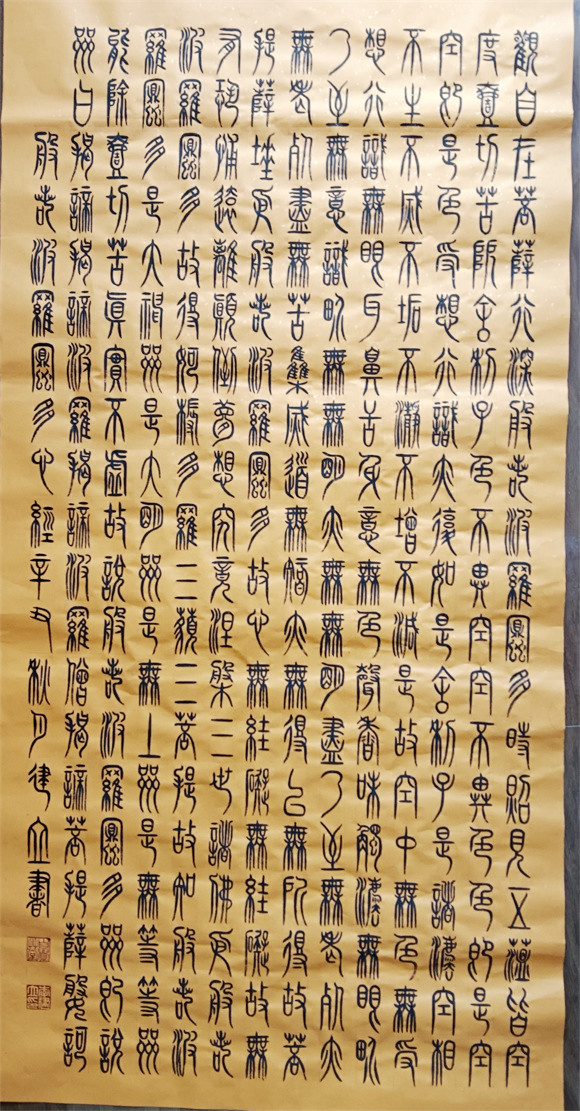 觀自在菩薩行深般若波羅蜜多時照見五蘊皆空
度壹切苦厄舍利子色不異空空不異色色即是空
空即是色受想行識亦復如是舍利子是諸法空相
不生不滅不垢不淨不增不減是故空中無色無受
想行識無眼耳鼻舌身意無色聲香味觸法無眼界
乃至無意識界無無明亦無無明盡乃至無老死亦
無老死盡無苦集滅道無智亦無得以無所得故菩
提薩埵依般若波羅蜜多故心無罣礙無罣礙故無
有恐怖遠離顛倒夢想究竟涅槃三世諸佛依般若
波羅蜜多故得阿耨多羅三藐三菩提故知般若波
羅蜜多是大神咒是大明咒是無上咒是無等等咒
能除壹切苦真實不虛故說般若波羅蜜多咒即說
咒曰揭諦揭諦波羅揭諦波羅僧揭諦菩提薩婆訶
般若波羅蜜多心經辛丑秋月建立書